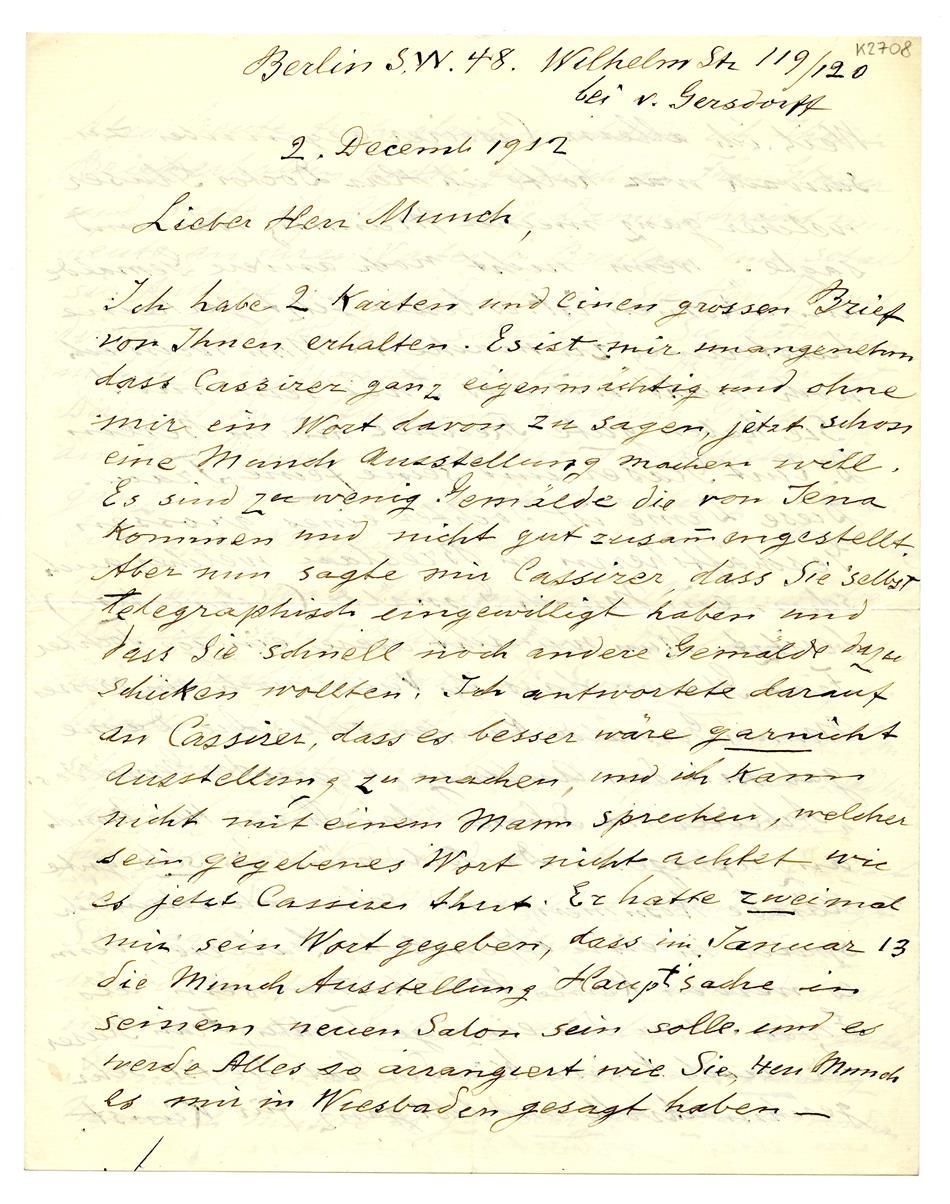 K2708
Berlin S.W. 48. Wilhelm Str 119/120
bei v. Gersdorff
2. Decemb 1912
Lieber Herr Munch,
Ich habe 2 Karten und einen grossen Brief
von Ihnen erhalten. Es ist mir unangenehm
dass Cassirer ganz eigenmächtig und ohne
mir ein Wort davon zu sagen, jetzt schon
eine Munch Ausstellung machen will.
Es sind zu wenig Gemälde die von Jena
kommen und nicht gut zusam̅engestellt.
Aber nun sagte mir Cassirer, dass Sie selbst
telegraphisch eingewilligt haben und
dass Sie schnell noch andere Gemälde dazu
schicken wollten. Ich antwortete darauf
an Cassirer, dass es besser wäre garnicht
Ausstellung zu machen, und ich kann
nicht mit einem Mann sprechen, welcher
sein gegebenes Wort nicht achtet wie
es jetzt Cassirer thut. Er hatte zweimal
mir sein Wort gegeben, dass im Januar 13
die Munch Ausstellung Hauptsache in
seinem neuen Salon sein solle und es
werde Alles so arrangiert wie Sie, Herr Munch
es mir in Wiesbaden gesagt haben —